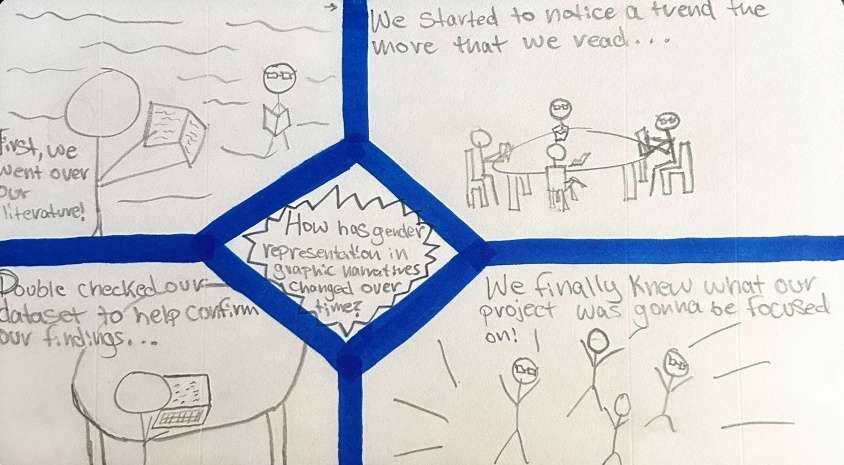 First, we
went over
our
literature!
We started to notice a trend the
more that we read...
How has gender
representation in
graphic narratives
changed over
time?
Double checked our
dataset to help confirm
our findings...
We finally knew what our
project was gonna be focused
on!